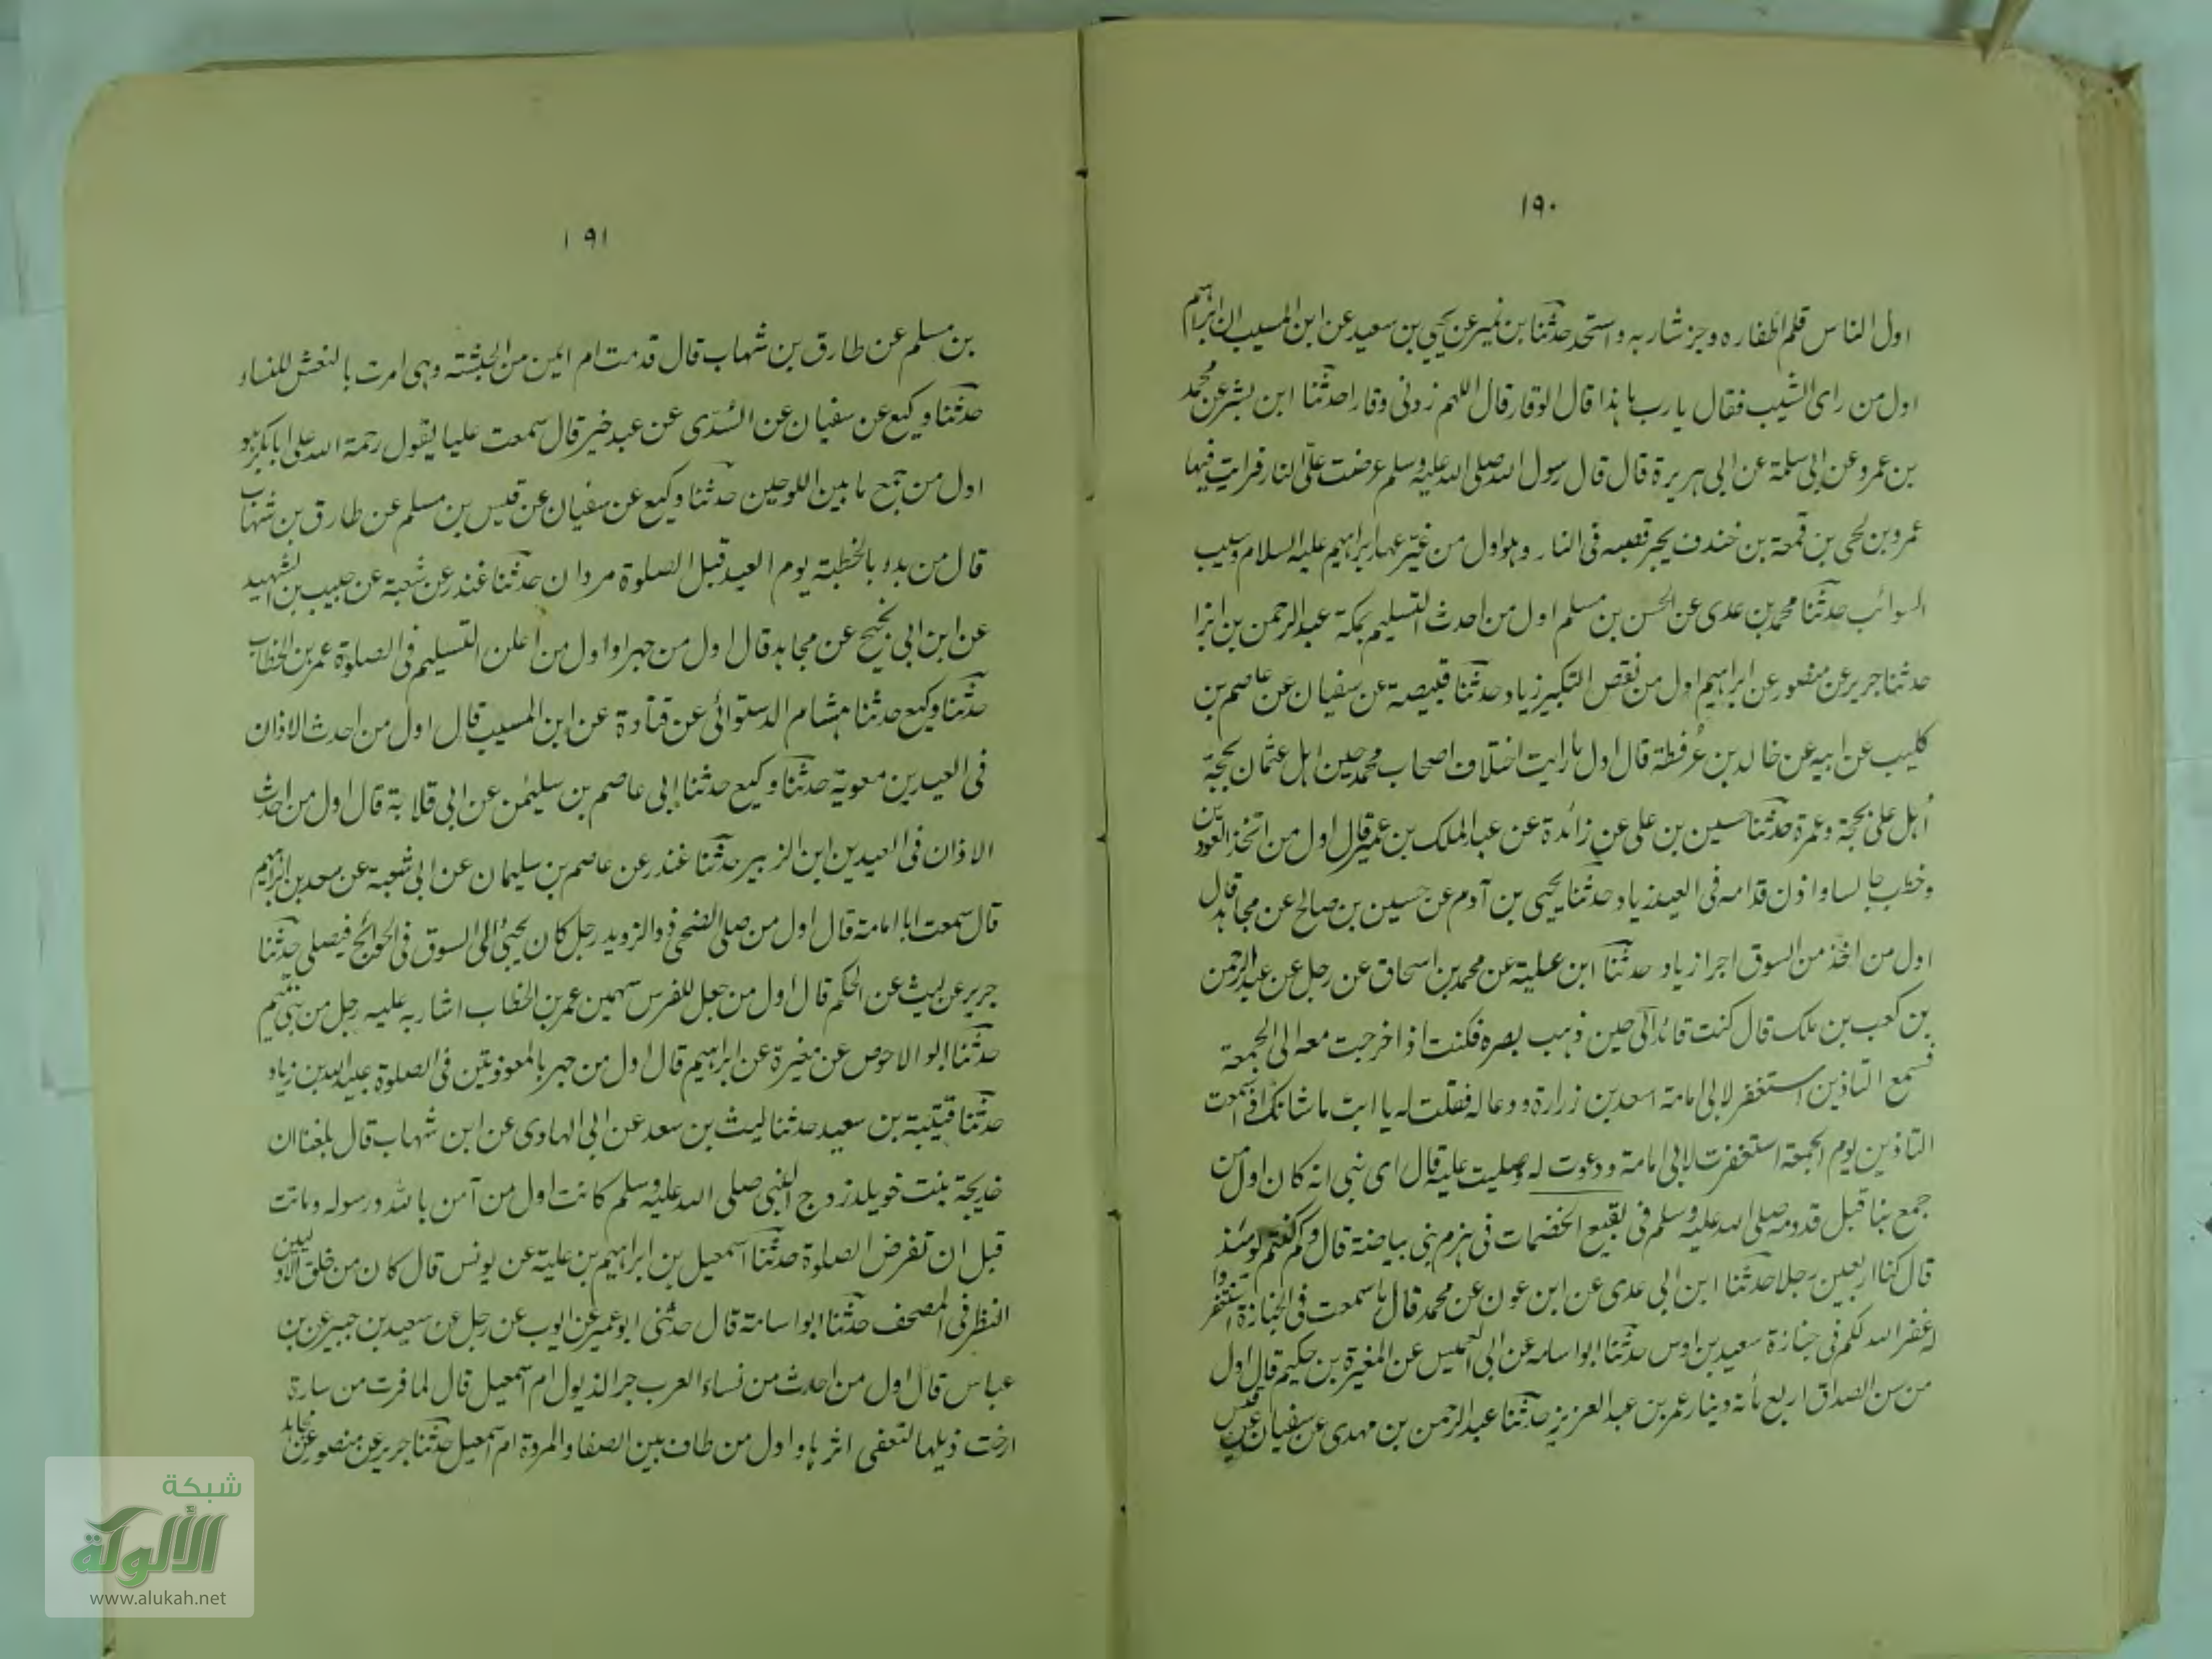 ١٩٠
اول الناس قلم اظفاره وجز شاربه واستحد حدثنا بن نمير عن يحيى بن سعيد عن ابن المسيب ان ابراهيم
اول من راى الشيب فقال يا رب ما هذا قال الوقار قال اللهم زدنى وقارا حدثنا ابن بشر عن محمد
بن عمرو عن ابى سلمة عن ابى هريرة قال قال رسول الله صلى الله عليه وسلم عرضت علىّ النار فرايت فيها
عمرو بن لحى بن قمعة بن خندف يجر قصبه فى النار وهو اول من غيّر عهد ابراهيم عليه السلام وسيب
السوائب حدثنا محمد بن عدى عن الحسن بن مسلم اول من احدث التسليم بمكة عبد الرحمن بن ابزا
حدثنا جرير عن منصور عن ابراهيم اول من نقص التكبير زياد حدثنا قبيصة عن سفيان عن عاصم بن
كليب عن ابيه عن خالد بن عُرفطة قال اول ما رايت اختلاف اصحاب محمد حين اهل عثمان بحجة
اُهل على بحجة وعمرة حدثنا حسين بن على عن زائدة عن عبد الملك بن عمير قال اول من اتخذ العود
وخطب جالسا واذن قدامه فى العيد زياد حدثنا يحيى بن آدم عن حسين بن صالح عن مجاهد قال
اول من اخذ من السوق اجرا زياد حدثنا ابن علية عن محمد بن اسحاق عن رجل عن عبد الرحمن
بن كعب بن ملك قال كنت قائد ابى حين ذهب بصره فكنت اذا خرجت معه الى الجمعة
فسمع التاذين استغفر لابى امامة اسعد بن زرارة ودعا له فقلت له يا ابت ما شانك اذا سمعت
التاذين يوم الجمعة استغفرت لابى امامة ودعوت له وصليت عليه قال اى بنى انه كان اول من
جمع بنا قبل قدومه صلى الله عليه وسلم فى بقيع الخضمات فى هزم بنى بياضة قال وكم كنتم يومئذ
قال كنا اربعين رجلا حدثنا ابن ابى عدى عن ابن عون عن محمد قال ما سمعت فى الجنازة استغفروا
له غفر الله لكم فى جنازة سعيد بن اوس حدثنا ابو اسامه عن ابى العميس عن المغيرة بن حكيم قال اول
من سن الصداق اربع مأئة دينار عمر بن عبد العزيز حدثنا عبد الرحمن بن مهدى عن سفيان عن قيس
١٩١
بن مسلم عن طارق بن شهاب قال قدمت ام ايمن من الحبشة وهى امرت بالنعش للنساء
حدثنا وكيع عن سفيان عن السُدّى عن عبد خير قال سمعت عليا يقول رحمة الله على ابا بكر هو
اول من جمع ما بين اللوحين حدثنا وكيع عن سفيان عن قيس بن مسلم عن طارق بن شهاب
قال من بدء بالخطبة يوم العيد قبل الصلوة مروان حدثنا غندر عن شعبة عن حبيب بن الشهيد
عن ابن ابى نجيح عن مجاهد قال اول من جهر او اول من اعلن التسليم فى الصلوة عمر بن الخطاب
حدثنا وكيع حدثنا هشام الدستوائى عن قتادة عن ابن المسيب قال اول من احدث الاذان
فى العيدين معوية حدثنا وكيع حدثنا ابى عاصم بن سليمن عن ابى قلابة قال اول من احدث
الاذان فى العيدين ابن الزبير حدثنا غندر عن عاصم بن سليمان عن ابى شعبة عن سعد بن ابراهيم
قال سمعت ابا امامة قال اول من صلى الضحى ذو الزويد رجل كان يجيئ الى السوق فى الحوائج فيصلى حدثنا
جرير عن ليث عن الحكم قال اول من جعل للفرس سهمين عمر بن الخطاب اشار به عليه رجل من بنى تميم
حدثنا ابو الاحوص عن مغيرة عن ابراهيم قال اول من جهر بالمعوذتين فى الصلوة عبيد الله بن زياد
حدثنا قتيبة بن سعيد حدثنا ليث بن سعد عن ابى الهادى عن ابن شهاب قال بلغنا ان
خديجة بنت خويلد زوج النبى صلى الله عليه وسلم كانت اول من آمن بالله ورسوله وماتت
قبل ان تفرض الصلوة حدثنا اسمعيل بن ابراهيم بن علية عن يونس قال كان من خلق الاولين
النظر فى المصحف حدثنا ابو اسامة قال حدثنى ابو عمير عن ايوب عن رجل عن سعيد بن جبير عن بن
عباس قال اول من احدث من نساء العرب جر الذيول ام اسمعيل قال لما فرت من سارة
ارخت ذيلها لتعفى اثرها واول من طاف بين الصفا والمروة ام اسمعيل حدثنا جرير عن منصور عن مجاهد
شبكة
الألوكة
www.alukah.net